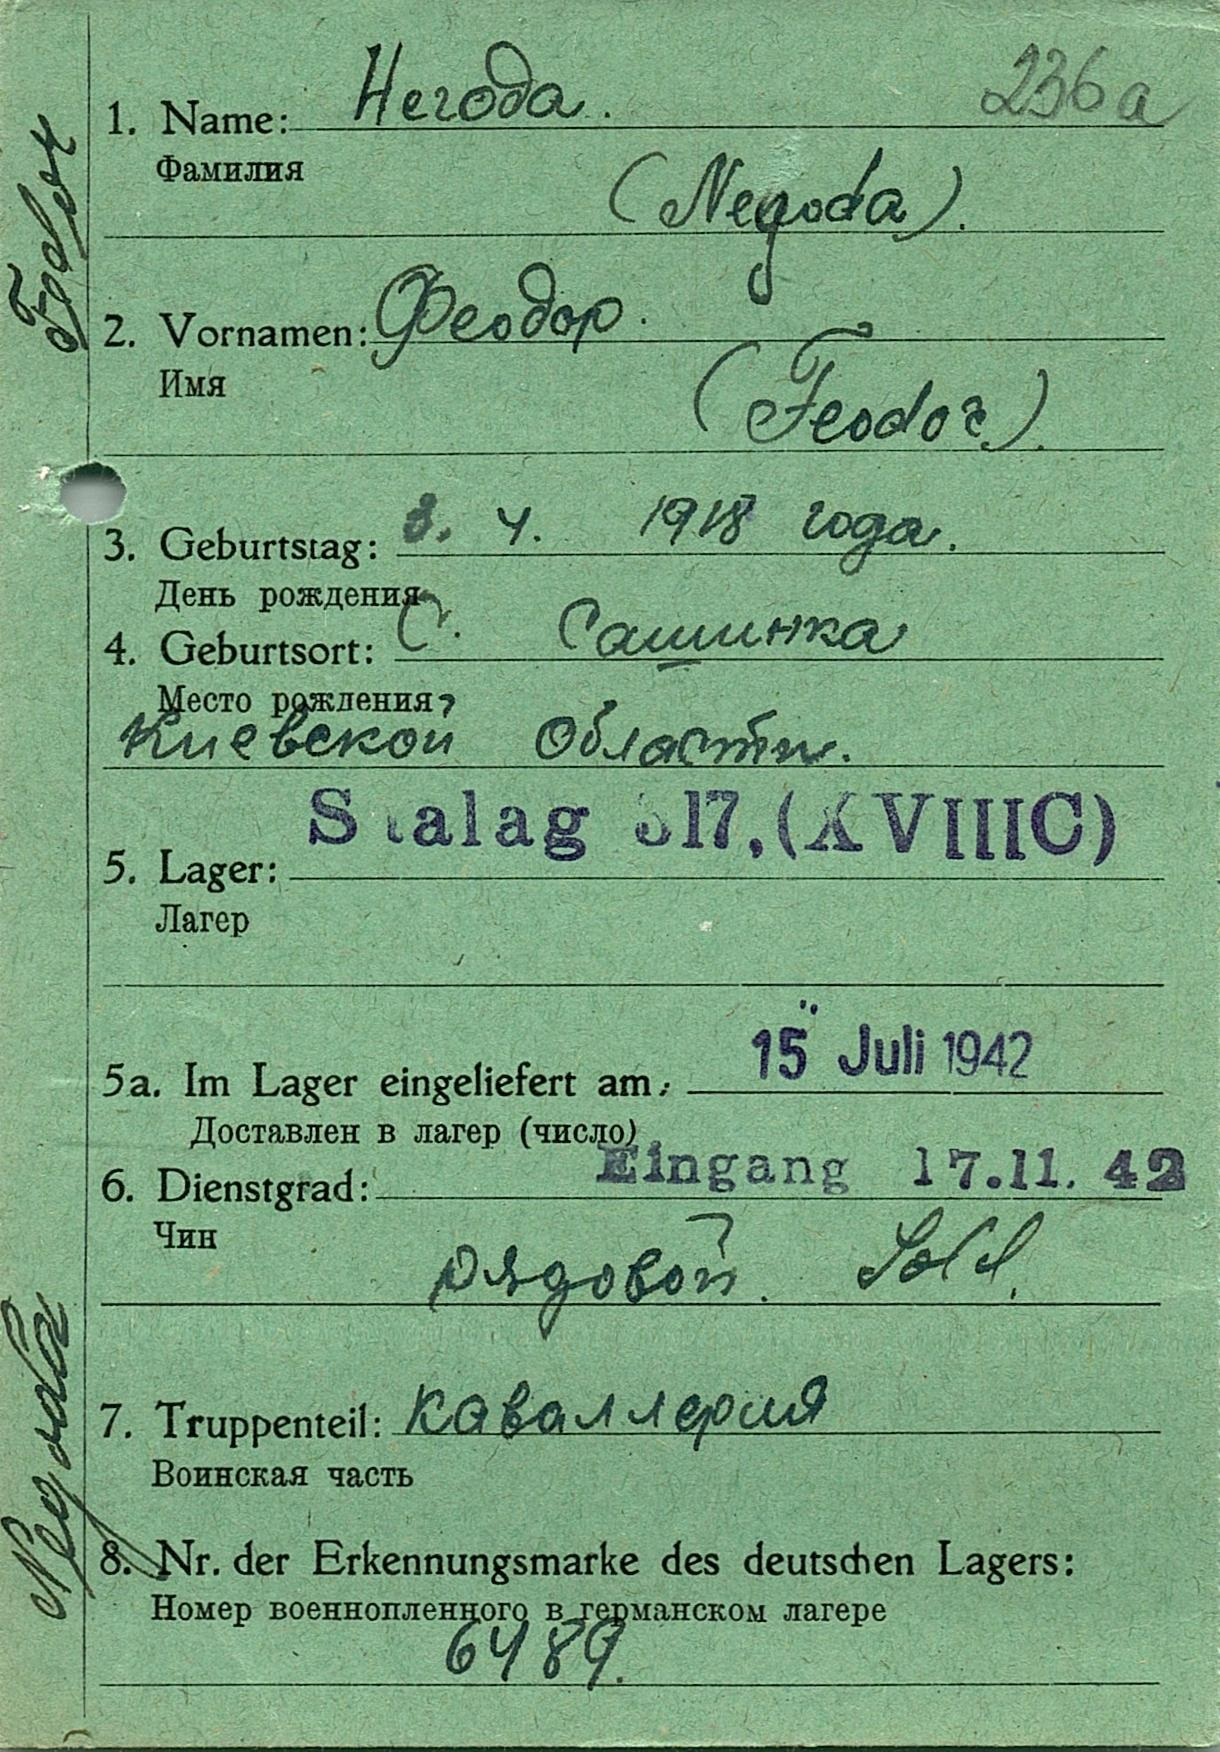 236a
1. Name: Негода.
Фамилия
(Negoda).
2. Vornamen: Феодор.
Имя
(Feodor).
3. Geburtstag: 3. 4. 1918 года.
День рождения
4. Geburtsort: С. Сашинка
Место рождения
Киевской Области.
Stalag 317, (XVIIIC)
5. Lager:
Лагер
5a. Im Lager eingeliefert am: 15 Juli 1942
Доставлен в лагер (число)
Eingang 17.11.42
6. Dienstgrad:
Чин
рядовой. Sold.
7. Truppenteil: каваллерия
Воинская часть
8. Nr. der Erkennungsmarke des deutschen Lagers:
Номер военнопленного в германском лагере
6489.
Negoda Fedor